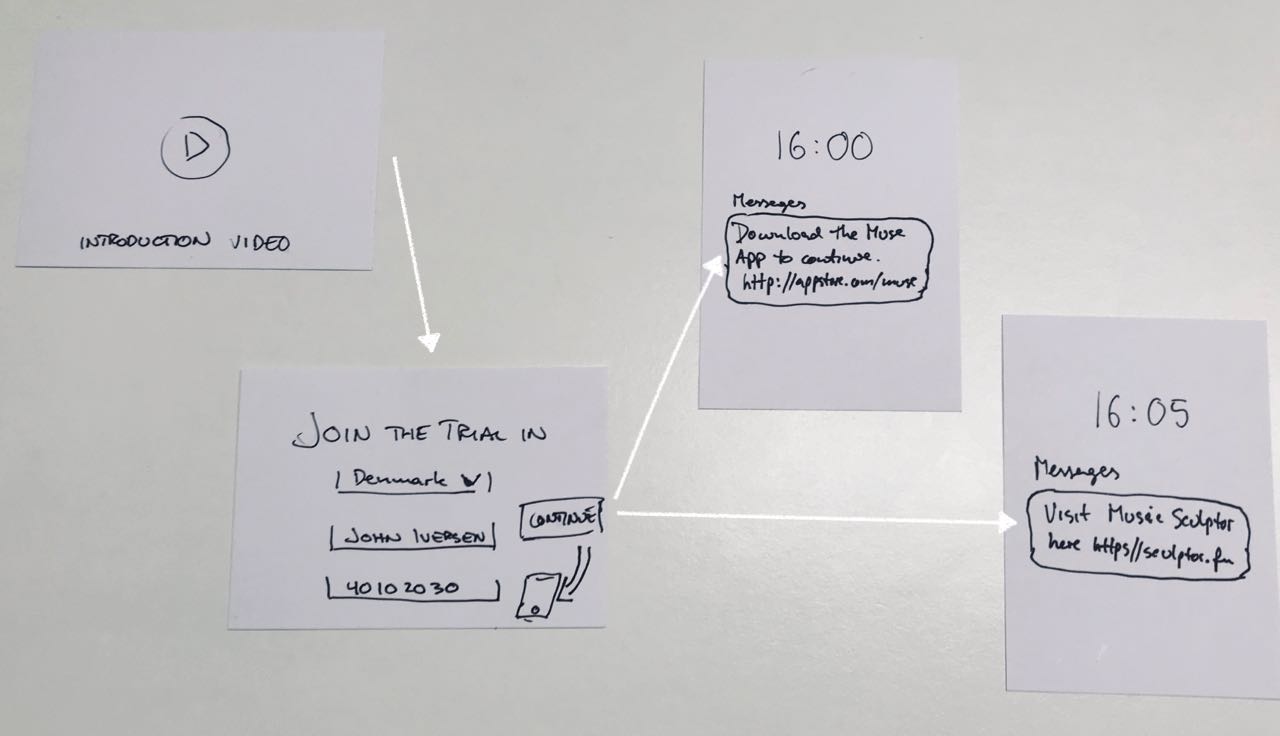 INTRODUCTION VIDEO
JOIN THE TRIAL IN
Denmark
JOHN IVERSEN
CONTINUE
40102030
16:00
Messages
Download the Muse
App to continue.
http://appstore.com/muse
16:05
Messages
Visit Music Sculptor
here https//sculptor.fm